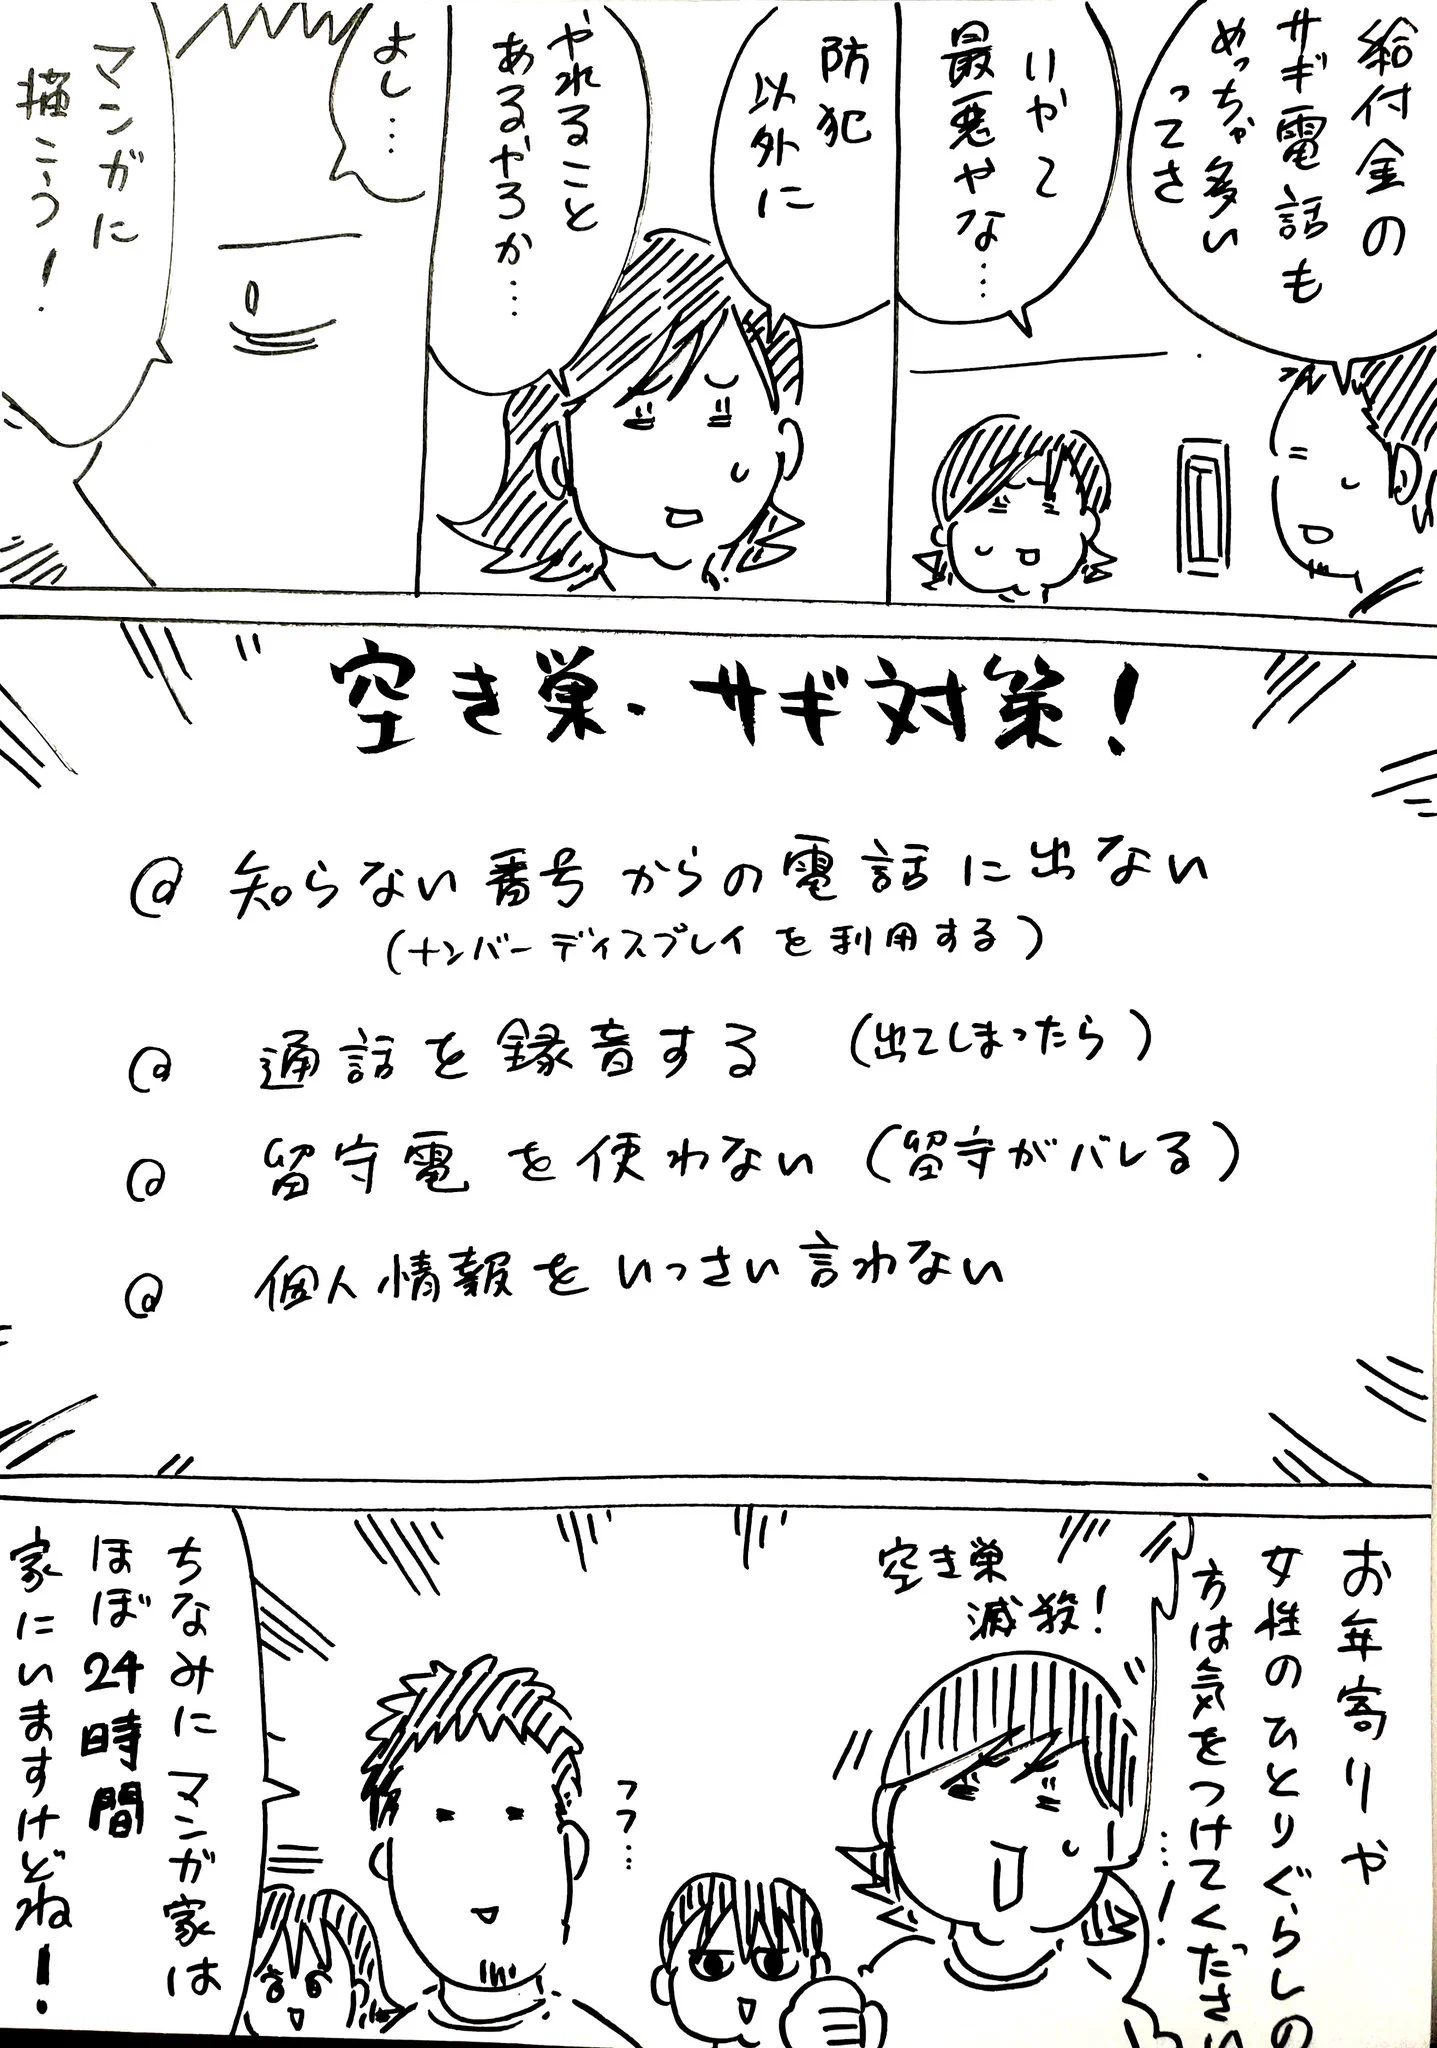 給付金の
サギ電話も
めっちゃ多い
ってさ
いやて
最悪やな…
防犯
以外に
やれること
あるやろか…
よし…
マンガに
描こう!
空き巣・サギ対策!
@ 知らない番号からの電話に出ない
(ナンバーディスプレイを利用する)
@ 通話を録音する (出てしまったら)
@ 留守電を使わない (留守がバレる)
@ 個人情報をいっさい言わない
お年寄りや
女性のひとりぐらしの
方は気をつけてください
…!
空き巣
滅殺!
フフ…
ちなみにマンガ家は
ほぼ24時間
家にいますけどね!